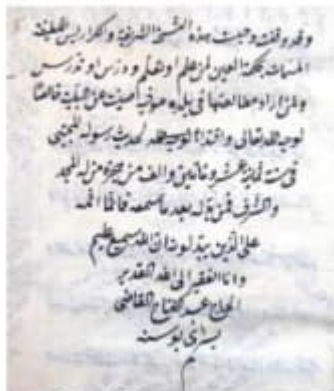 وقد وقفت وحبست هذه النسخة الشريفة والكراريس اللطيفة
المسمات بحكمة العين لمن علم او تعلم و درس او تدرس
ولمن اراد مطالعتها في بلدة صينت عن البلية خالصا
لوجه الله تعالى واتخذا لوسيلة لحديث رسوله المجتبى
في سنة ثمانية عشر و مأتين والف من هجرة من له المجد
والشرف فمن بدله بعد ما سمعه فانما اثمه
على الذين يبدلونه ان الله سميع عليم
وانا الفقير الى الله القدير
الحاج عبد الفتاح القاضي
بسراى بوسنه
م